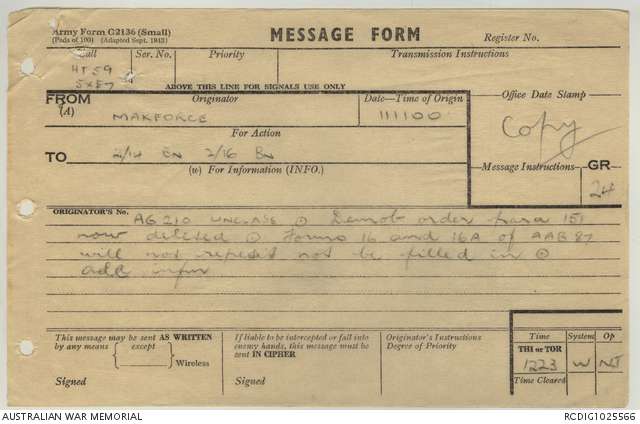 Army Form C2136 (Small)
(Pads of 100) (Adapted Sept. 1943)
MESSAGE FORM
Register No.
Call
Ser. No.
Priority
Transmission Instructions
HT 59
ABOVE THIS LINE FOR SIGNALS USE ONLY
FROM
(A)
Originator
Date—Time of Origin
Office Date Stamp
MAKFORCE
111100
Copy
For Action
TO
2/14 BN 2/16 BN
(w) For Information (INFO.)
Message Instructions
GR
24
ORIGINATOR'S No.
AG 210 UNCLASS ⊙ Demob order para 151
now deleted ⊙ Forms 16 and 16A of AAB 87
will not repeat not be filled in ⊙
add infm
This message may be sent AS WRITTEN
by any means
except
Wireless
Signed
If liable to be intercepted or fall into
enemy hands, this message must be
sent IN CIPHER
Signed
Originator's Instructions
Degree of Priority
Time
System
Op
THI or TOR
1223
W
NJ
Time Cleared
AUSTRALIAN WAR MEMORIAL
RCDIG1025566